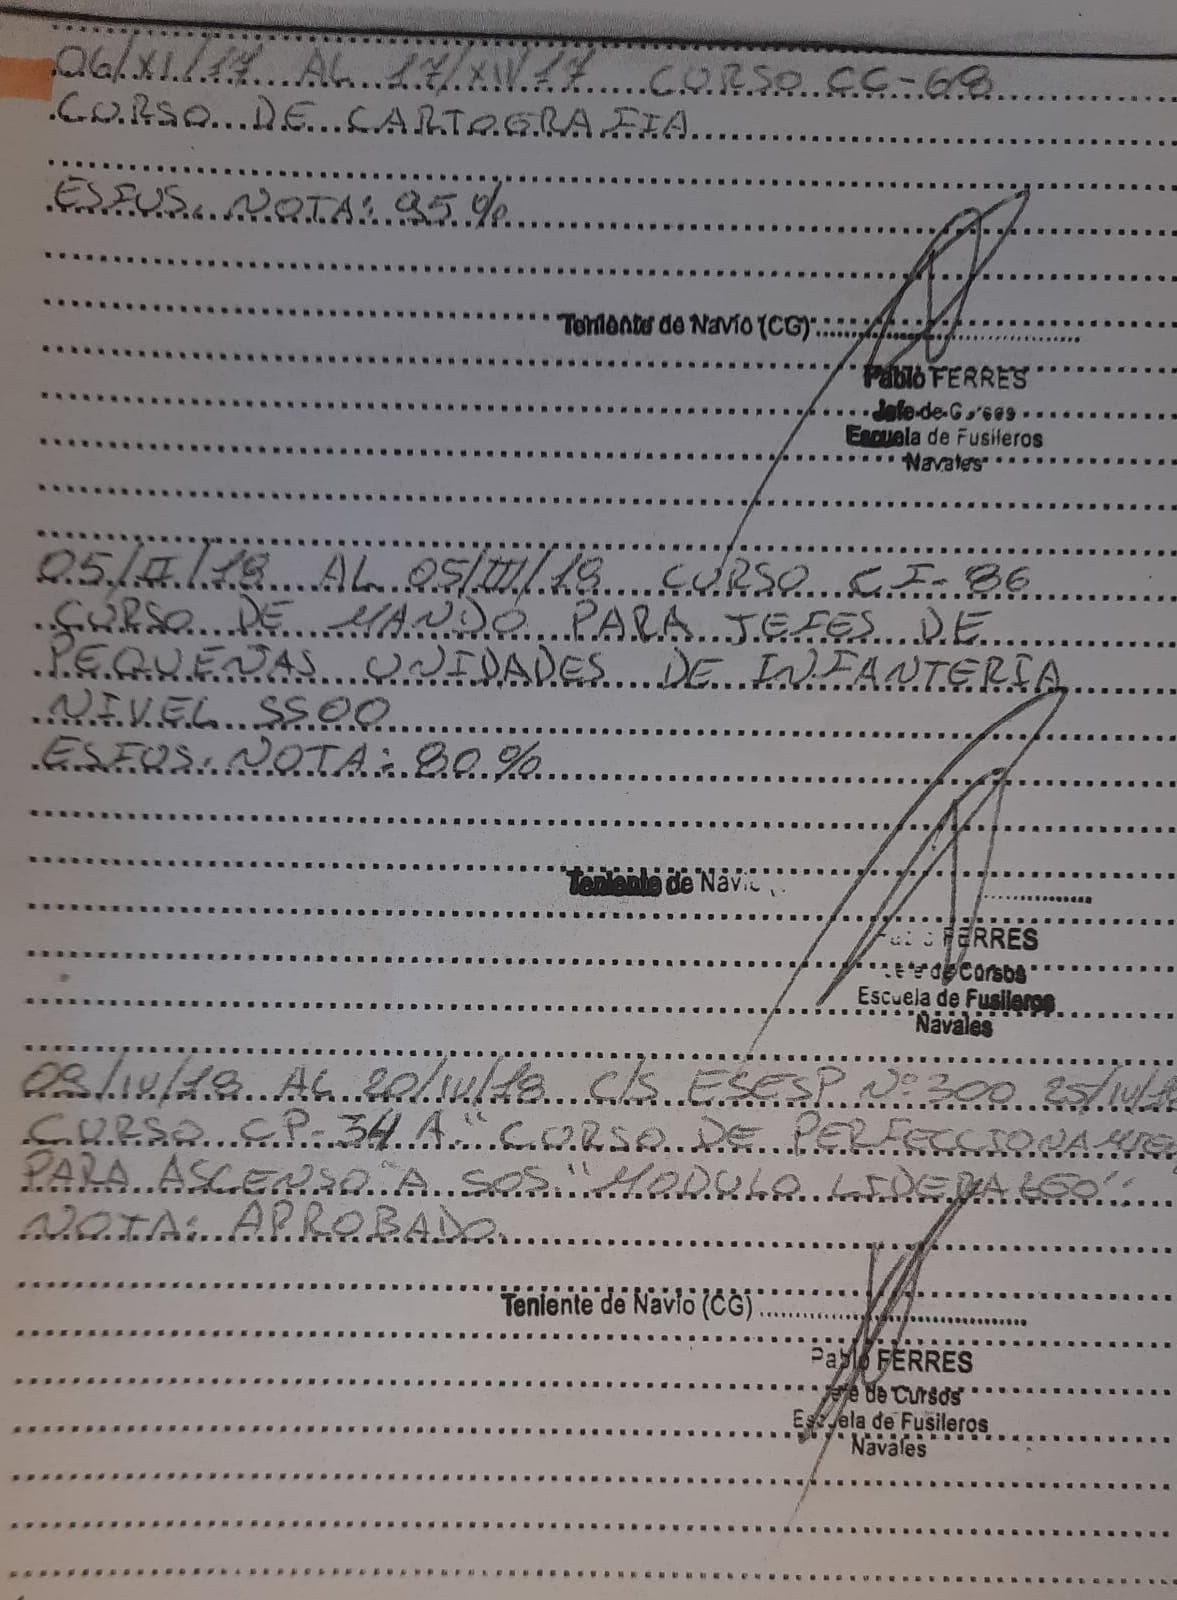 06/XI/17 AL 17/XI/17 CURSO CC-68
CURSO DE CARTOGRAFIA
ESFUS. NOTA: 95%
Teniente de Navio (CG)
Pablo FERRES
Jefe de
Escuela de Fusileros
Navales
05/II/18 AL 05/III/18 CURSO CI-86
CURSO DE MANDO PARA JEFES DE
PEQUEÑAS UNIDADES DE INFANTERIA
NIVEL SSOO
ESFUS. NOTA: 80%
Teniente de
FERRES
de Cursos
Escuela de Fusileros
Navales
09/IV/18 AL 20/IV/18 C/S ESESP Nº 300
CURSO CP-34 A "CURSO DE
PARA ASCENSO" A SOS "MODULO LIDERAZGO".
NOTA: APROBADO.
Teniente de Navio (CG)
Pablo FERRES
Jefe de Cursos
Escuela de Fusileros
Navales